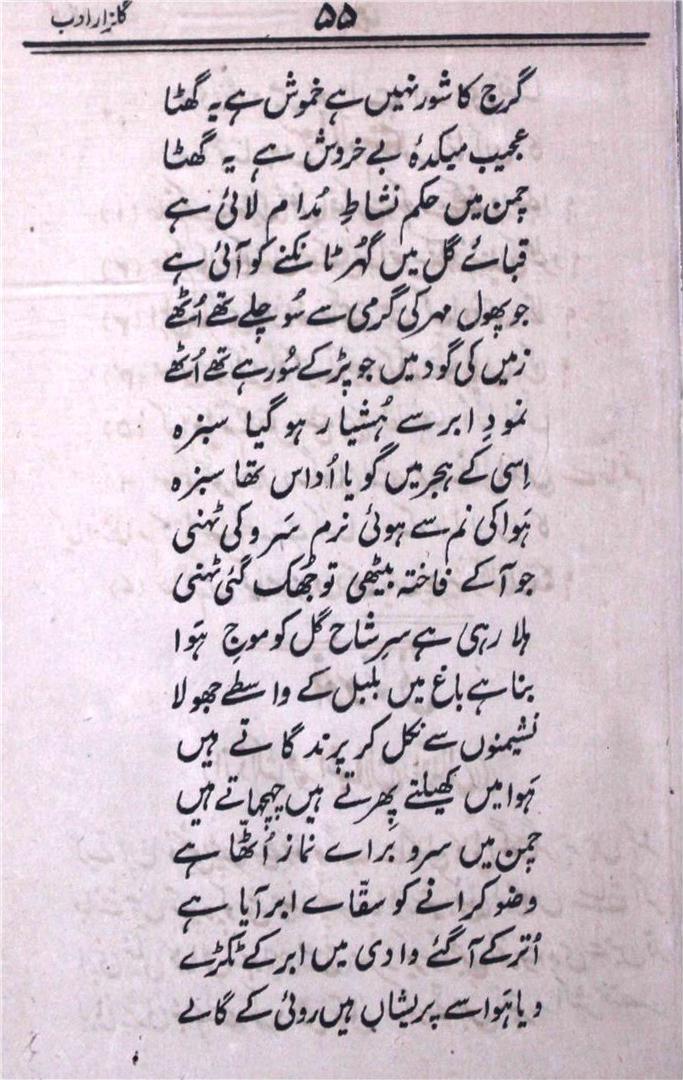 گلزار ادب
۵۵
گرج کا شور نہیں ہے خموش ہے یہ گھٹا
عجیب میکدۂ بے خروش ہے یہ گھٹا
چمن میں حکم نشاطِ مُدام لائی ہے
قبائے گل میں گُہر ٹانکنے کو آئی ہے
جو پھول مہر کی گرمی سے سُو چلے تھے اُٹھے
زمیں کی گود میں جو پڑ کے سُو رہے تھے اُٹھے
نمودِ ابر سے ہُشیار ہو گیا سبزہ
اِسی کے ہجر میں گویا اُداس تھا سبزہ
ہَوا کی نم سے ہوئی نرم سَرو کی ٹہنی
جو آ کے فاختہ بیٹھی تو جھک گئی ٹہنی
ہلا رہی ہے سرِ شاح گل کو موجِ ہَوا
بنا ہے باغ میں بلبل کے واسطے جھولا
نشیمنوں سے نکل کر پرند گاتے ہیں
ہَوا میں کھیلتے پِھرتے ہیں چہچہاتے ہیں
چمن میں سرو براے نماز اُٹھا ہے
وضو کرانے کو سقّاے ابر آیا ہے
اُتر کے آ گئے وادی میں ابر کے ٹکڑے
ویا ہَوا سے پریشاں ہیں روئی کے گالے